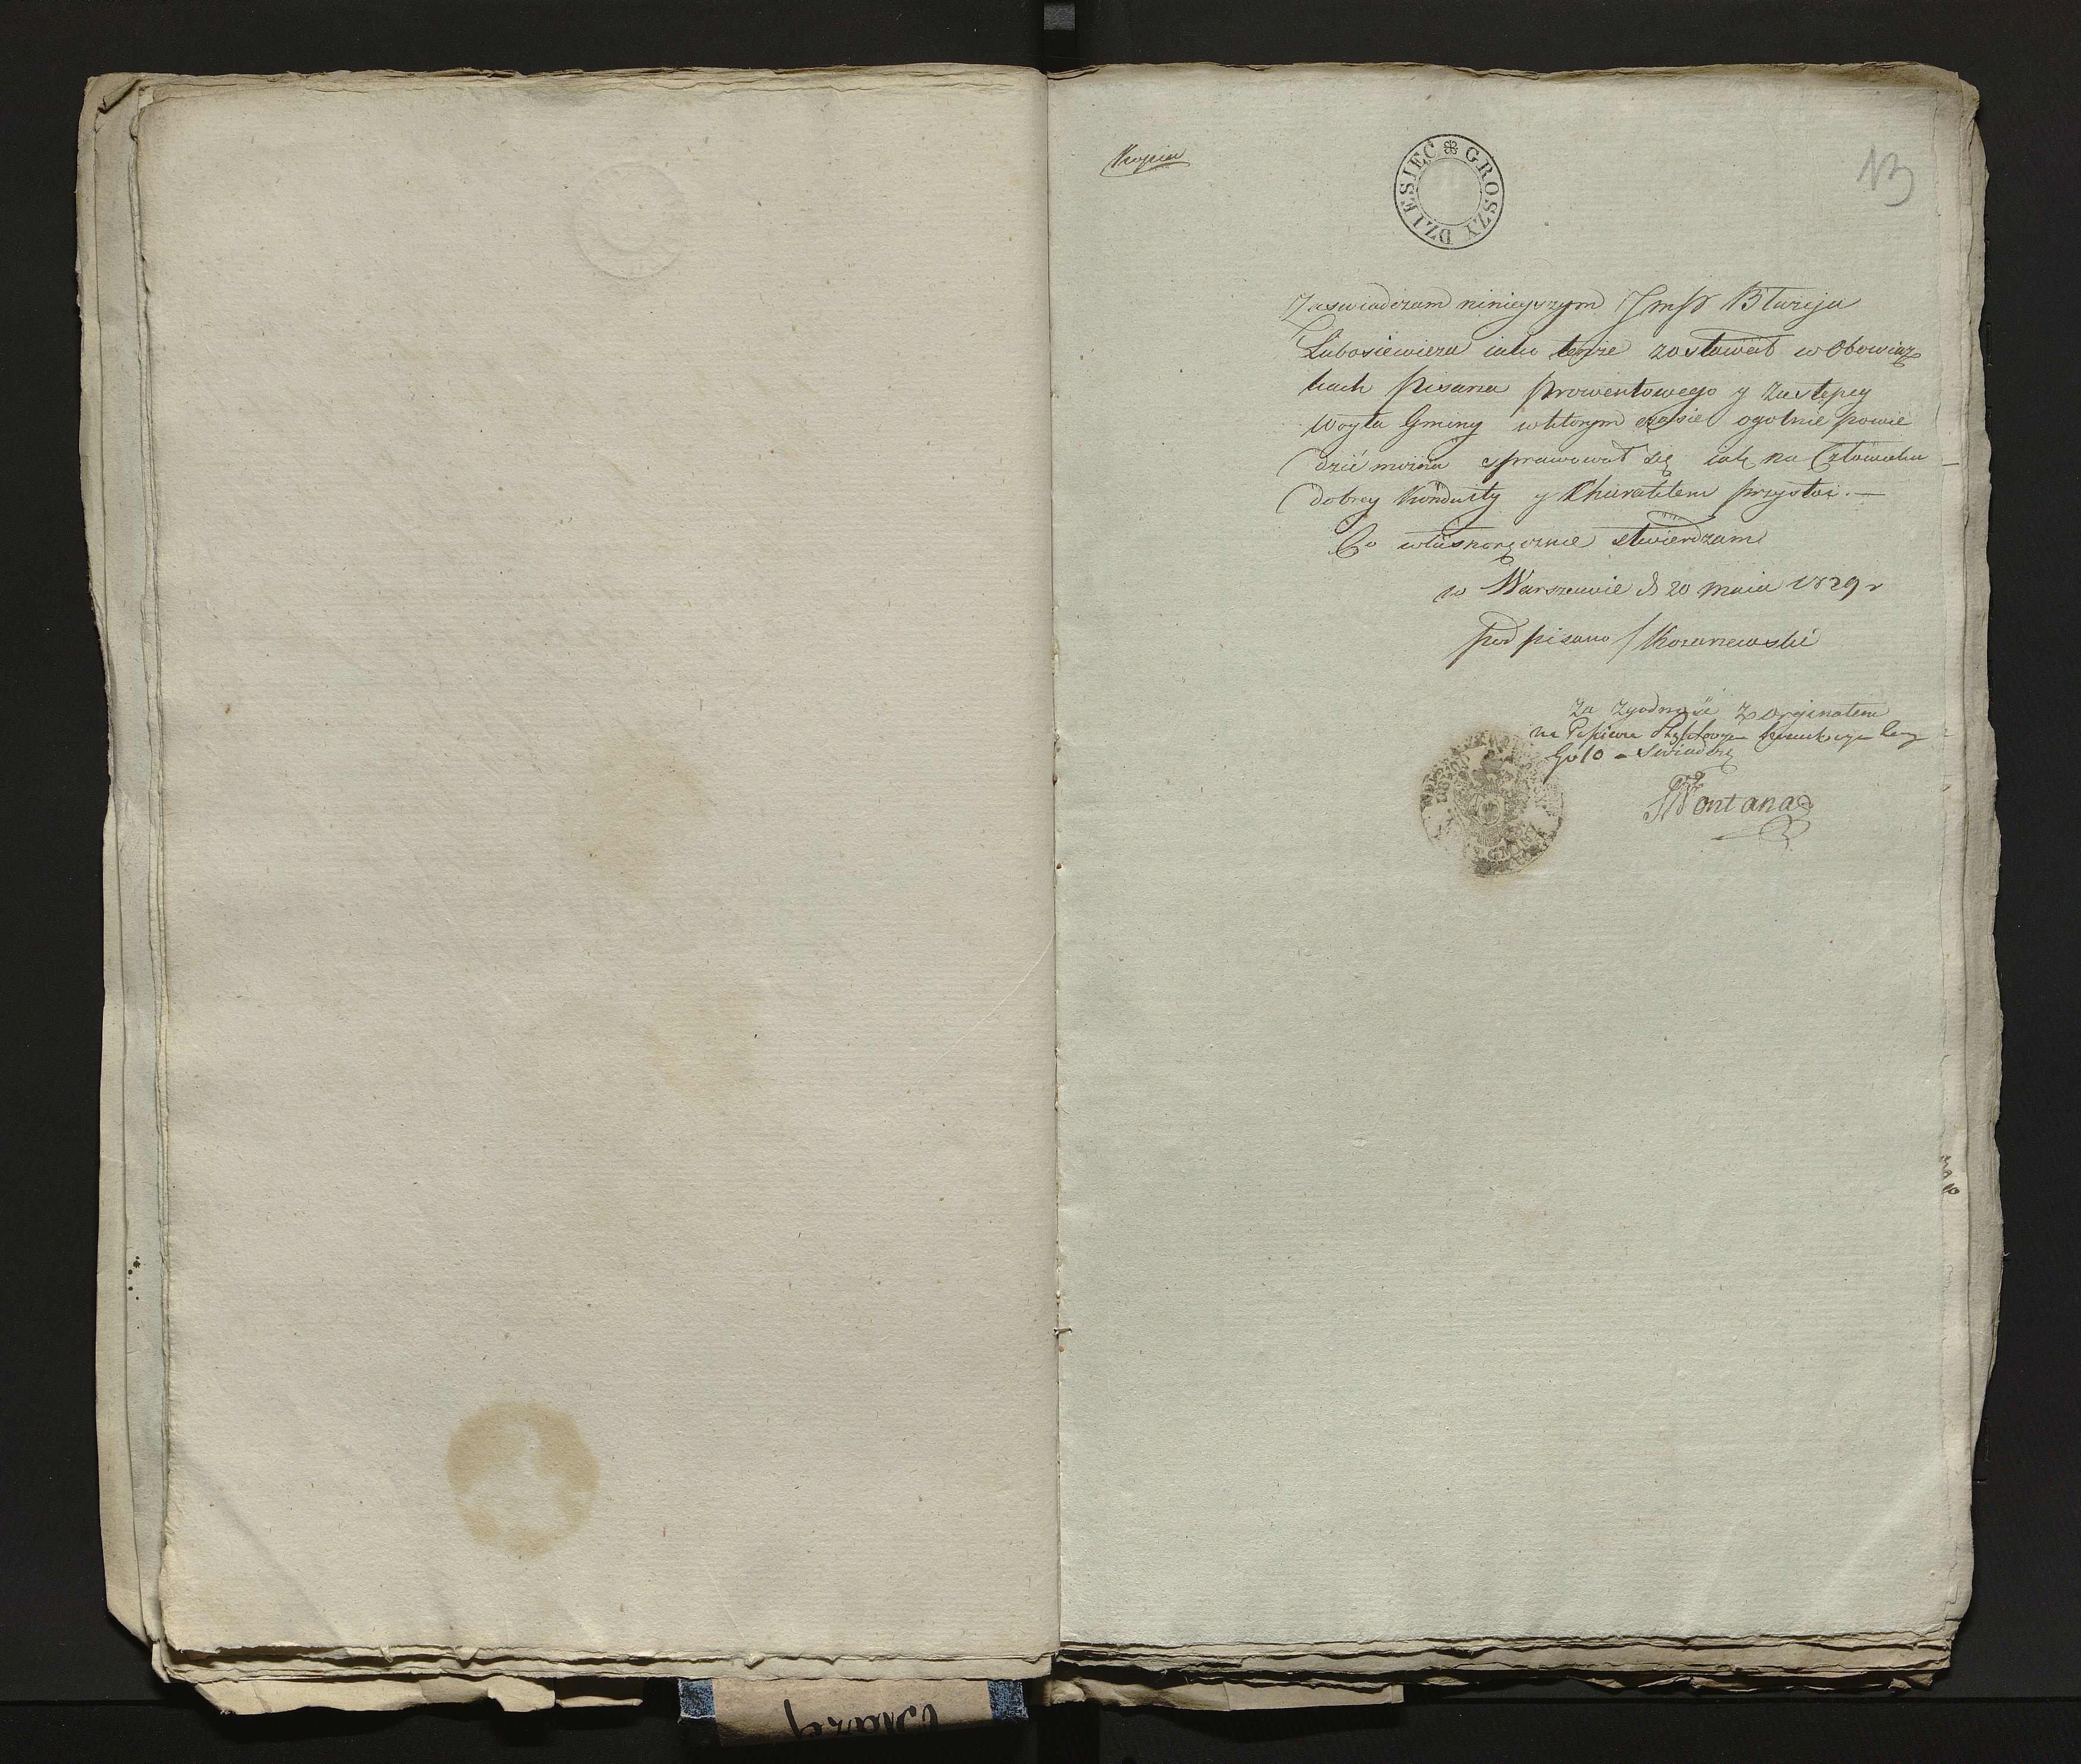 Kopia
DZIESIĘĆ GROSZY
13
Zaswiadczam niniejszym JmP Błażeja
Lubosiewicza iako tenże zostawał w Obowiąz
kach Pisarza Prowentowego y Zastępcy
Woyta Gminy w którym czasie ogolnie powie
dzić można sprawował się iak na Człowieka
dobrey Konduity y Charakteru przystoi. —
Co własnoręcznie stwierdzam
w Warszawie d 20 maia 1829 r
podpisano / Kozarzewski
Za Zgodność z Orginałem
na Papierze Stęplowym Ceny
Gr 10 - Swiadczę
Fontana
Błażej